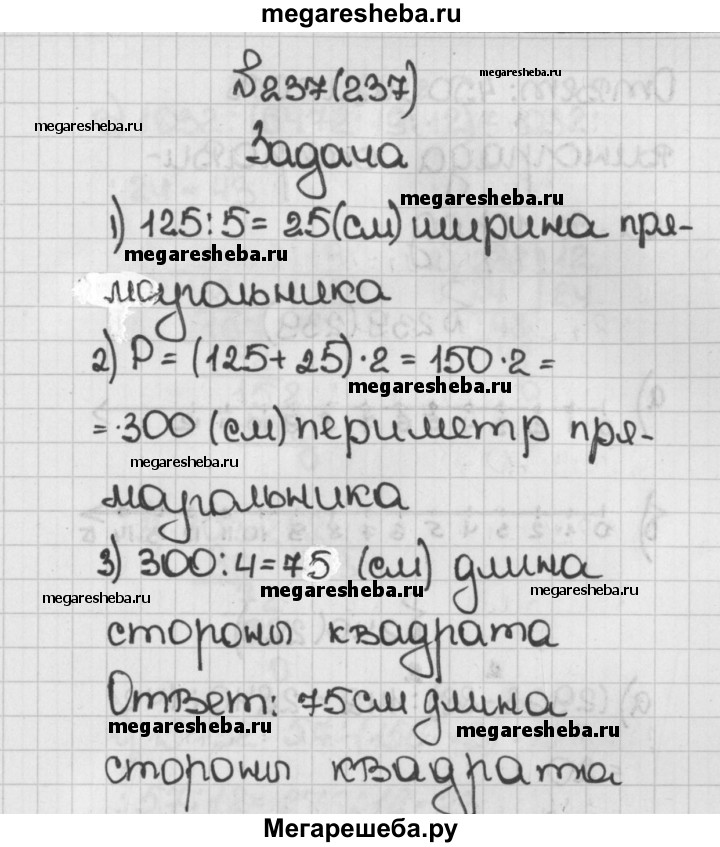 megaresheba.ru
№237(237)
megaresheba.ru
megaresheba.ru
Задача
megaresheba.ru
1) 125:5= 25(см) ширина пря-
megaresheba.ru
моугольника
2) P = (125+ 25)·2 = 150·2 =
megaresheba.ru
=·300 (см) периметр пря-
megaresheba.ru
моугольника
3) 300:4=75 (см) длина
megaresheba.ru
megaresheba.ru
megaresheba.ru
стороны квадрата
Ответ: 75см длина
megaresheba.ru
megaresheba.ru
стороны квадрата
Мегарешеба.ру